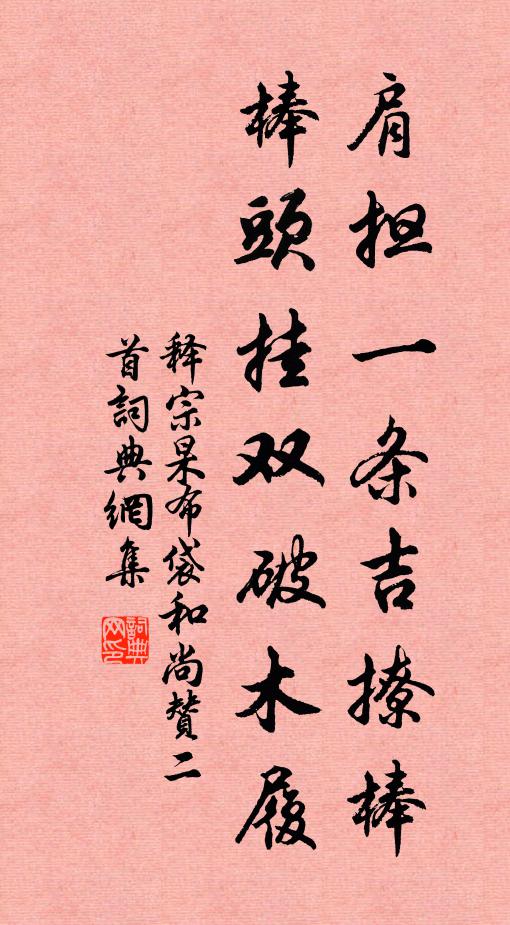 肩担一条吉撩棒
棒頭挂双破木履
释宗杲布袋和尚赞二
首詞典網集
詞典网印